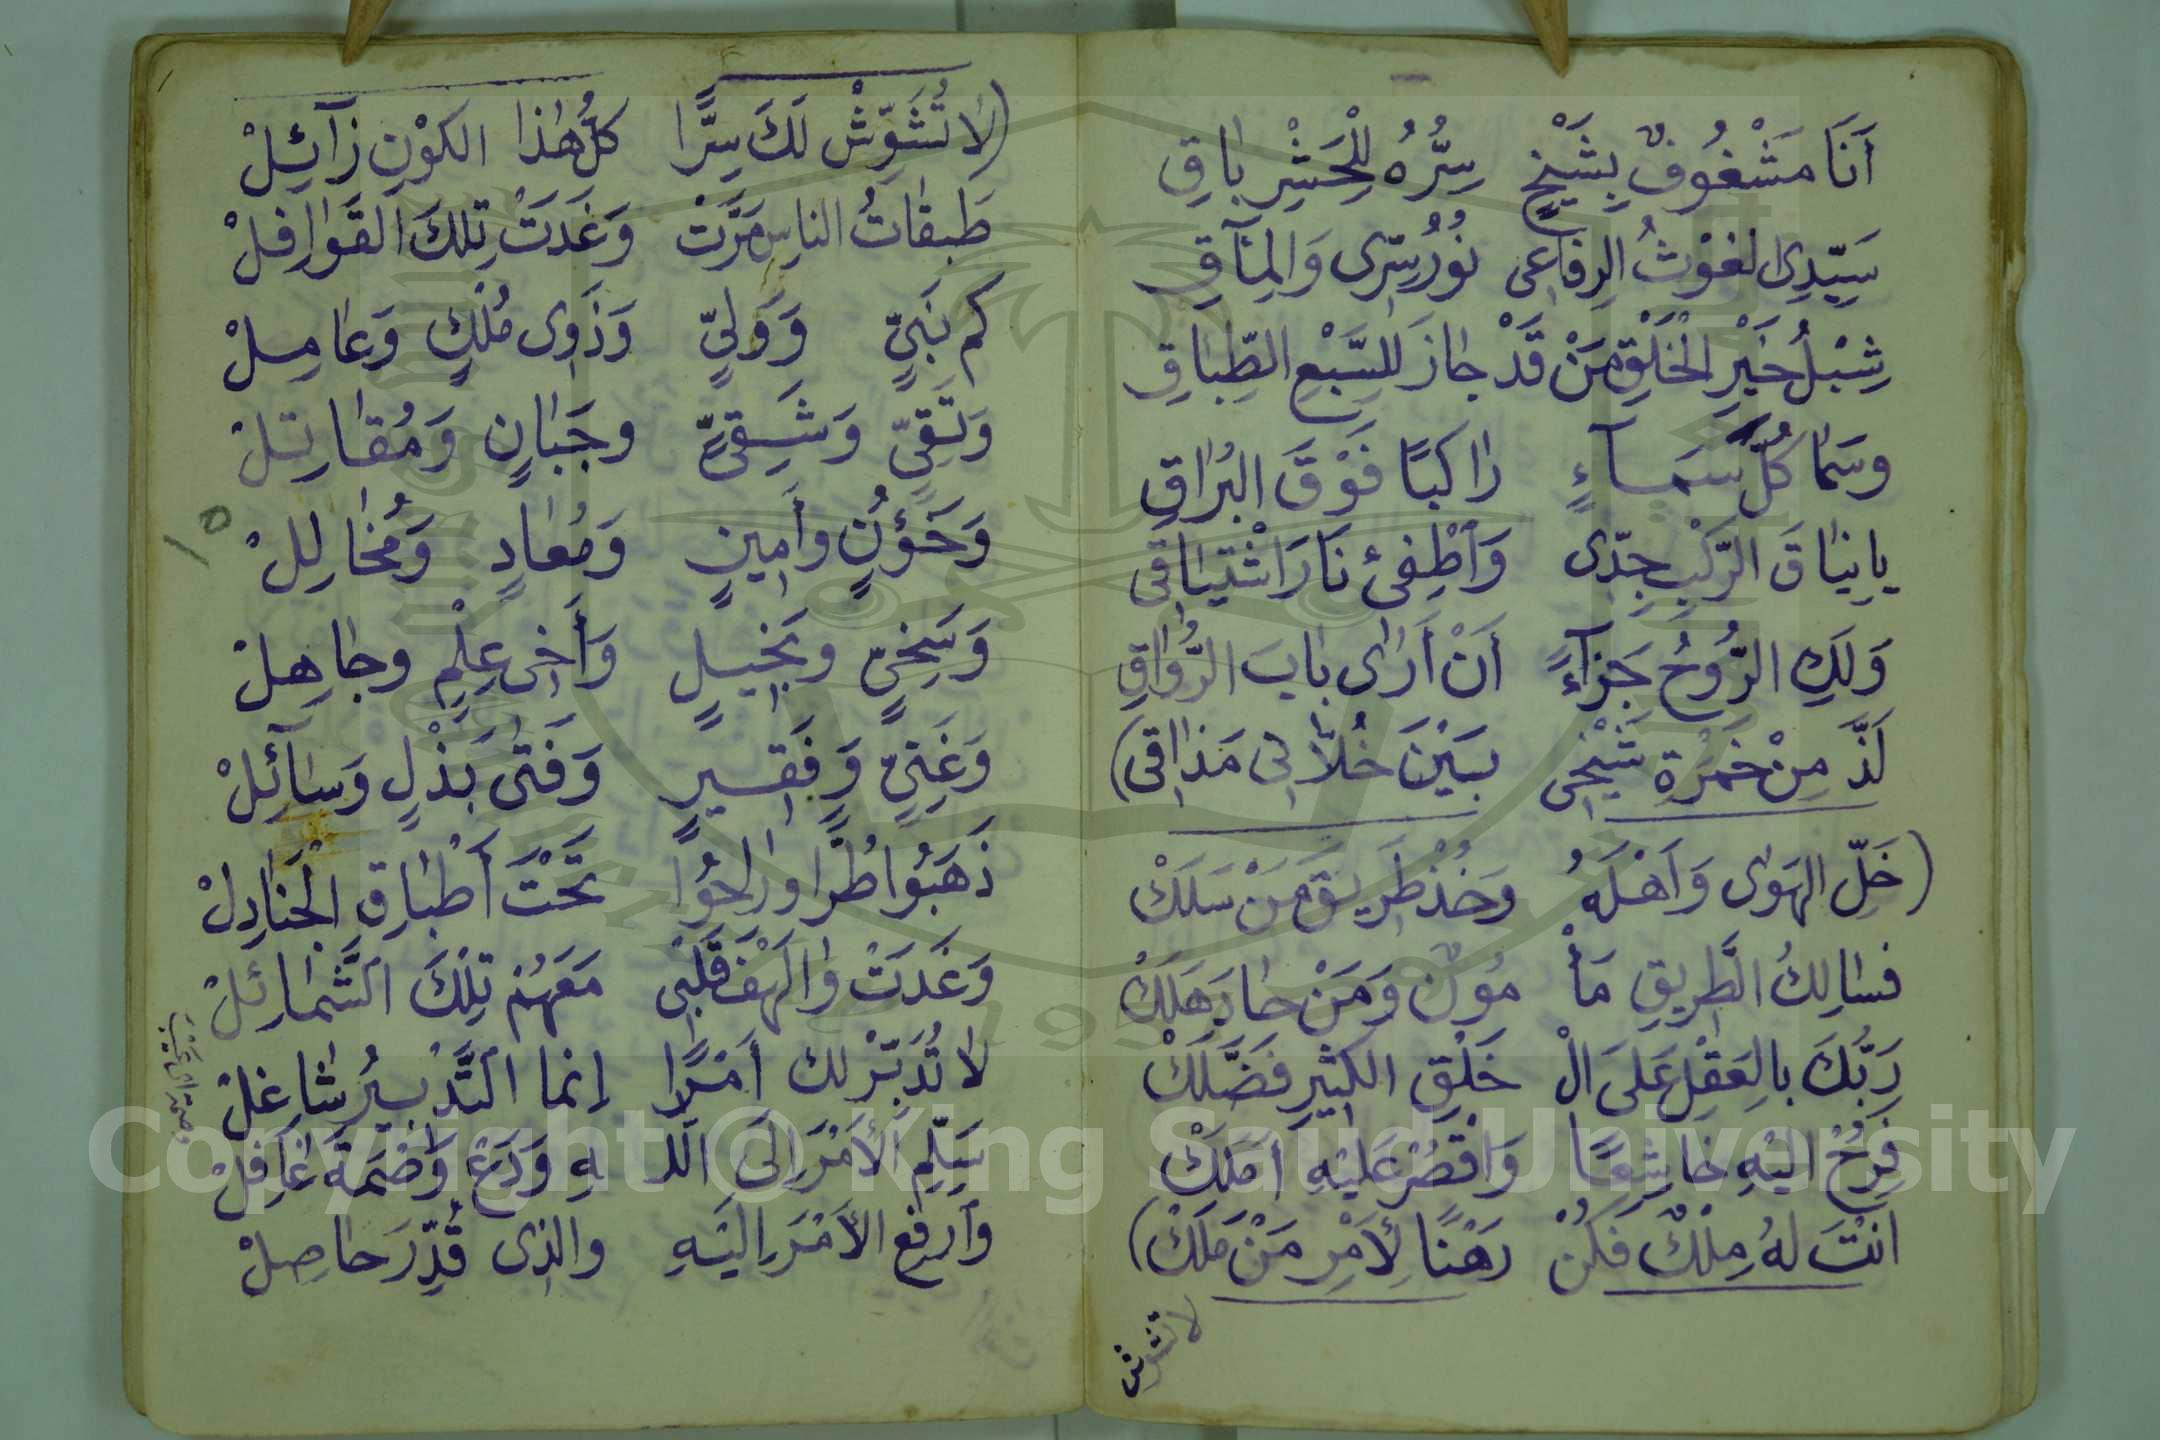 أَنَا مَشْغُوفٌ بِشَيْخٍ سِرُّهُ لِلْحَشْرِ بَاقِ
سَيِّدِى الغَوْثُ الرِفَاعِى نُورُ سِرِّى وَالمِآقِ
شِبْلُ خَيْرِ الْخَلْقِ مَنْ قَدْ جَازَ للسَّبْعِ الطِّبَاقِ
وسَمَا كُلَّ سَمَآءٍ رَاكبًا فَوْقَ البُرَاقِ
يا نِيَاقَ الرَّكْبِ جِدِّى وَاَطْفِئ نَارَ اشْتِيَاقِى
وَلَكِ الرُّوحُ جَزَآءً أَنْ أَرَى بَابَ الرُّوَاقِ
لَذَّ مِنْ خَمْرَةِ شَيْخِى بَيْنَ خُلَّانِى مَذَاقِى)
(خَلِّ الهَوَى وَاَهْلَهُ وَخُذْ طَرِيقَ مَنْ سَلَكْ
فسَالِكُ الطَّرِيقِ مَأْ مُونٌ وَمَنْ حَادَ هَلَكْ
رَبُّكَ بِالعَقْلِ عَلَى الْ خَلْقِ الكَثِيرِ فَضَّلَكْ
فَرُحْ اليْهِ خَاشِعًا وَاقْصُرْ عَلَيْهِ اَمَلَكْ
انْتَ لهُ مِلْكٌ فَكُنْ رَهْنًا لِأَمْرِ مَنْ مَلَكْ)
لا تشوش
(لا تُشَوِّشْ لَكَ سِرًّا كلُّ هٰذا الكوْنِ زَآئِلْ
طَبقَاتُ الناسِ مَرَّتْ وَغَدَتْ تِلكَ القَوَافِلْ
كم نَبىٍّ وَوَلىٍّ وَذَوِى مُلْكٍ وَعَامِلْ
وَتَقِىٍّ وَشَقِىٍّ وجَبَانٍ وَمُقَاتِلْ
وَخَؤُنٍ وأَمِينٍ وَمُعَادٍ وَمُخَالِلْ
وَسَخِىٍّ وبَخِيلٍ وَأَخِى عِلْمٍ وجَاهِلْ
وَغَنِىٍّ وَفَقِيرٍ وَفَتَى بَذْلٍ وَسَآئِلْ
ذَهَبُوا طُرًّا ورَاحُوا تَحْتَ أَطْبَاقِ الْجَنَادِلْ
وَغَدَتْ وَالَهْفَ قَلْبِى مَعَهُمْ تِلْكَ الشَّمَائِلْ
لا تُدَبِّرْ لك أَمْرًا انما التَّدْبِيرُ شَاغِلْ
سَلِّمِ الأَمْرَ اِلَى اللَّـ ـهِ وَدَعْ وَصْمَةَ غَافِلْ
وَارفعِ الأَمْرَ اِليَهِ والذِى قُدِّرَ حَاصِلْ